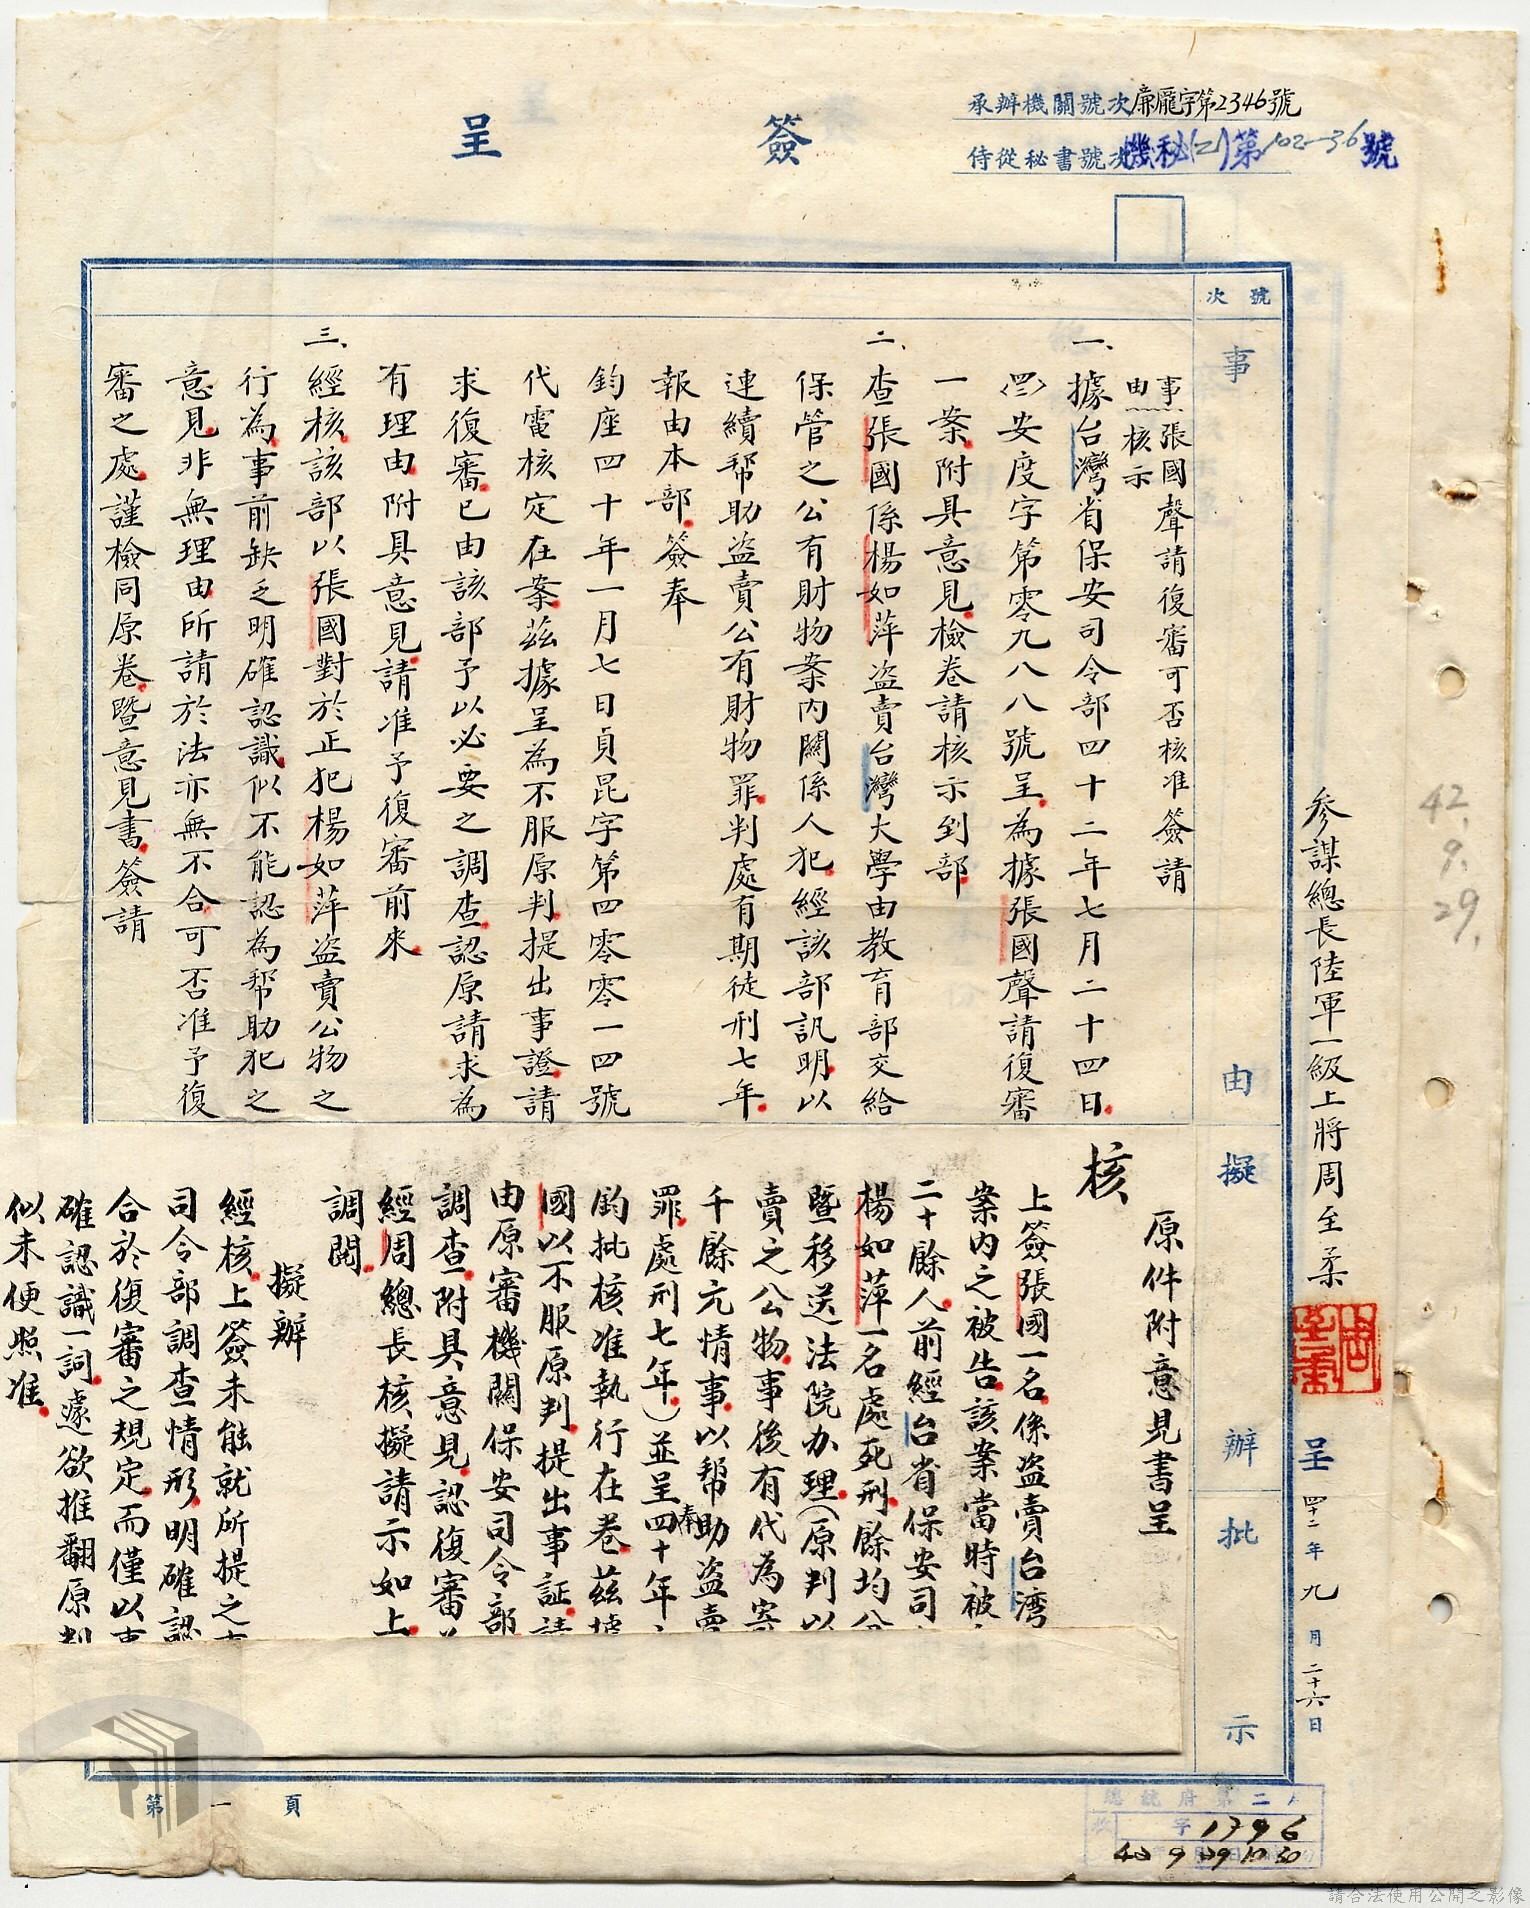 簽呈
承辦機關號次廉龐字第2346號
侍從秘書號次機秘(二)第102-36號
號次
事由
擬辦
批示
事由
張國聲請復審可否核准簽請
核示
一、據台灣省保安司令部四十二年七月二十四日
(四二)安度字第零九八八號呈為據張國聲請復審
一案附具意見檢卷請核示到部
二、查張國係楊如萍盜賣台灣大學由教育部交給
保管之公有財物案內關係人犯經該部訊明以
連續幫助盜賣公有財物罪判處有期徒刑七年
報由本部簽奉
鈞座四十年一月七日貞昆字第四零零一四號
代電核定在案茲據呈為不服原判提出事證請
求復審已由該部予以必要之調查認原請求為
有理由附具意見請准予復審前來
三、經核該部以張國對於正犯楊如萍盜賣公物之
行為事前缺乏明確認識似不能認為幫助犯之
意見非無理由所請於法亦無不合可否准予復
審之處謹檢同原卷暨意見書簽請
核
原件附意見書呈
上簽張國一名係盜賣台湾
案內之被告該案當時被
二十餘人前經台省保安司
楊如萍一名處死刑餘均分
暨移送法院办理(原判以
賣之公物事後有代為寄
千餘元情事以幫助盜賣
罪處刑七年)並呈奉四十年
鈞批核准執行在卷茲據
國以不服原判提出事証請
由原審機關保安司令部
調查附具意見認復審
經周總長核擬請示如上
調閱
擬辦
經核上簽未能就所提之事
司令部調查情形明確認
合於復審之規定而僅以事
確認識一詞遽欲推翻原判
似未便照准
參謀總長陸軍一級上將周至柔
周至柔
呈
四十二年九月二十六日
42.9.29.
第一頁
總統府第二
收字1796
42 9 29 10 30
請合法使用公開之影像